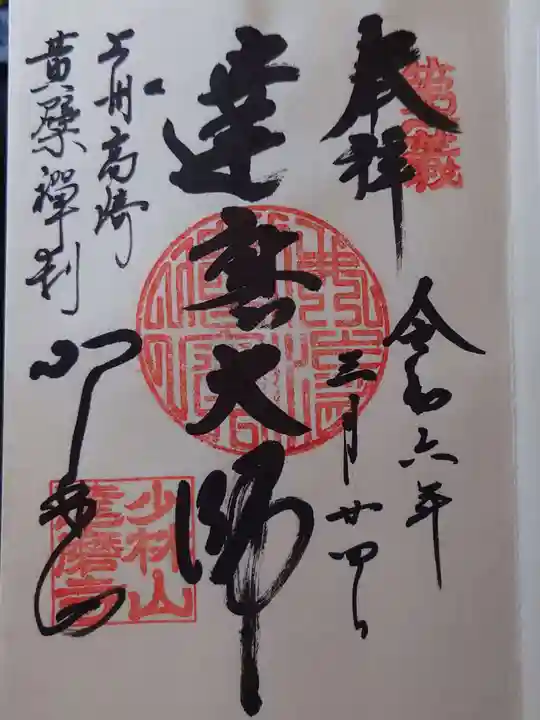 奉拝
令和六年
三月廿四日
達磨大師
上州高崎
黄檗禅刹
少林山
達磨寺